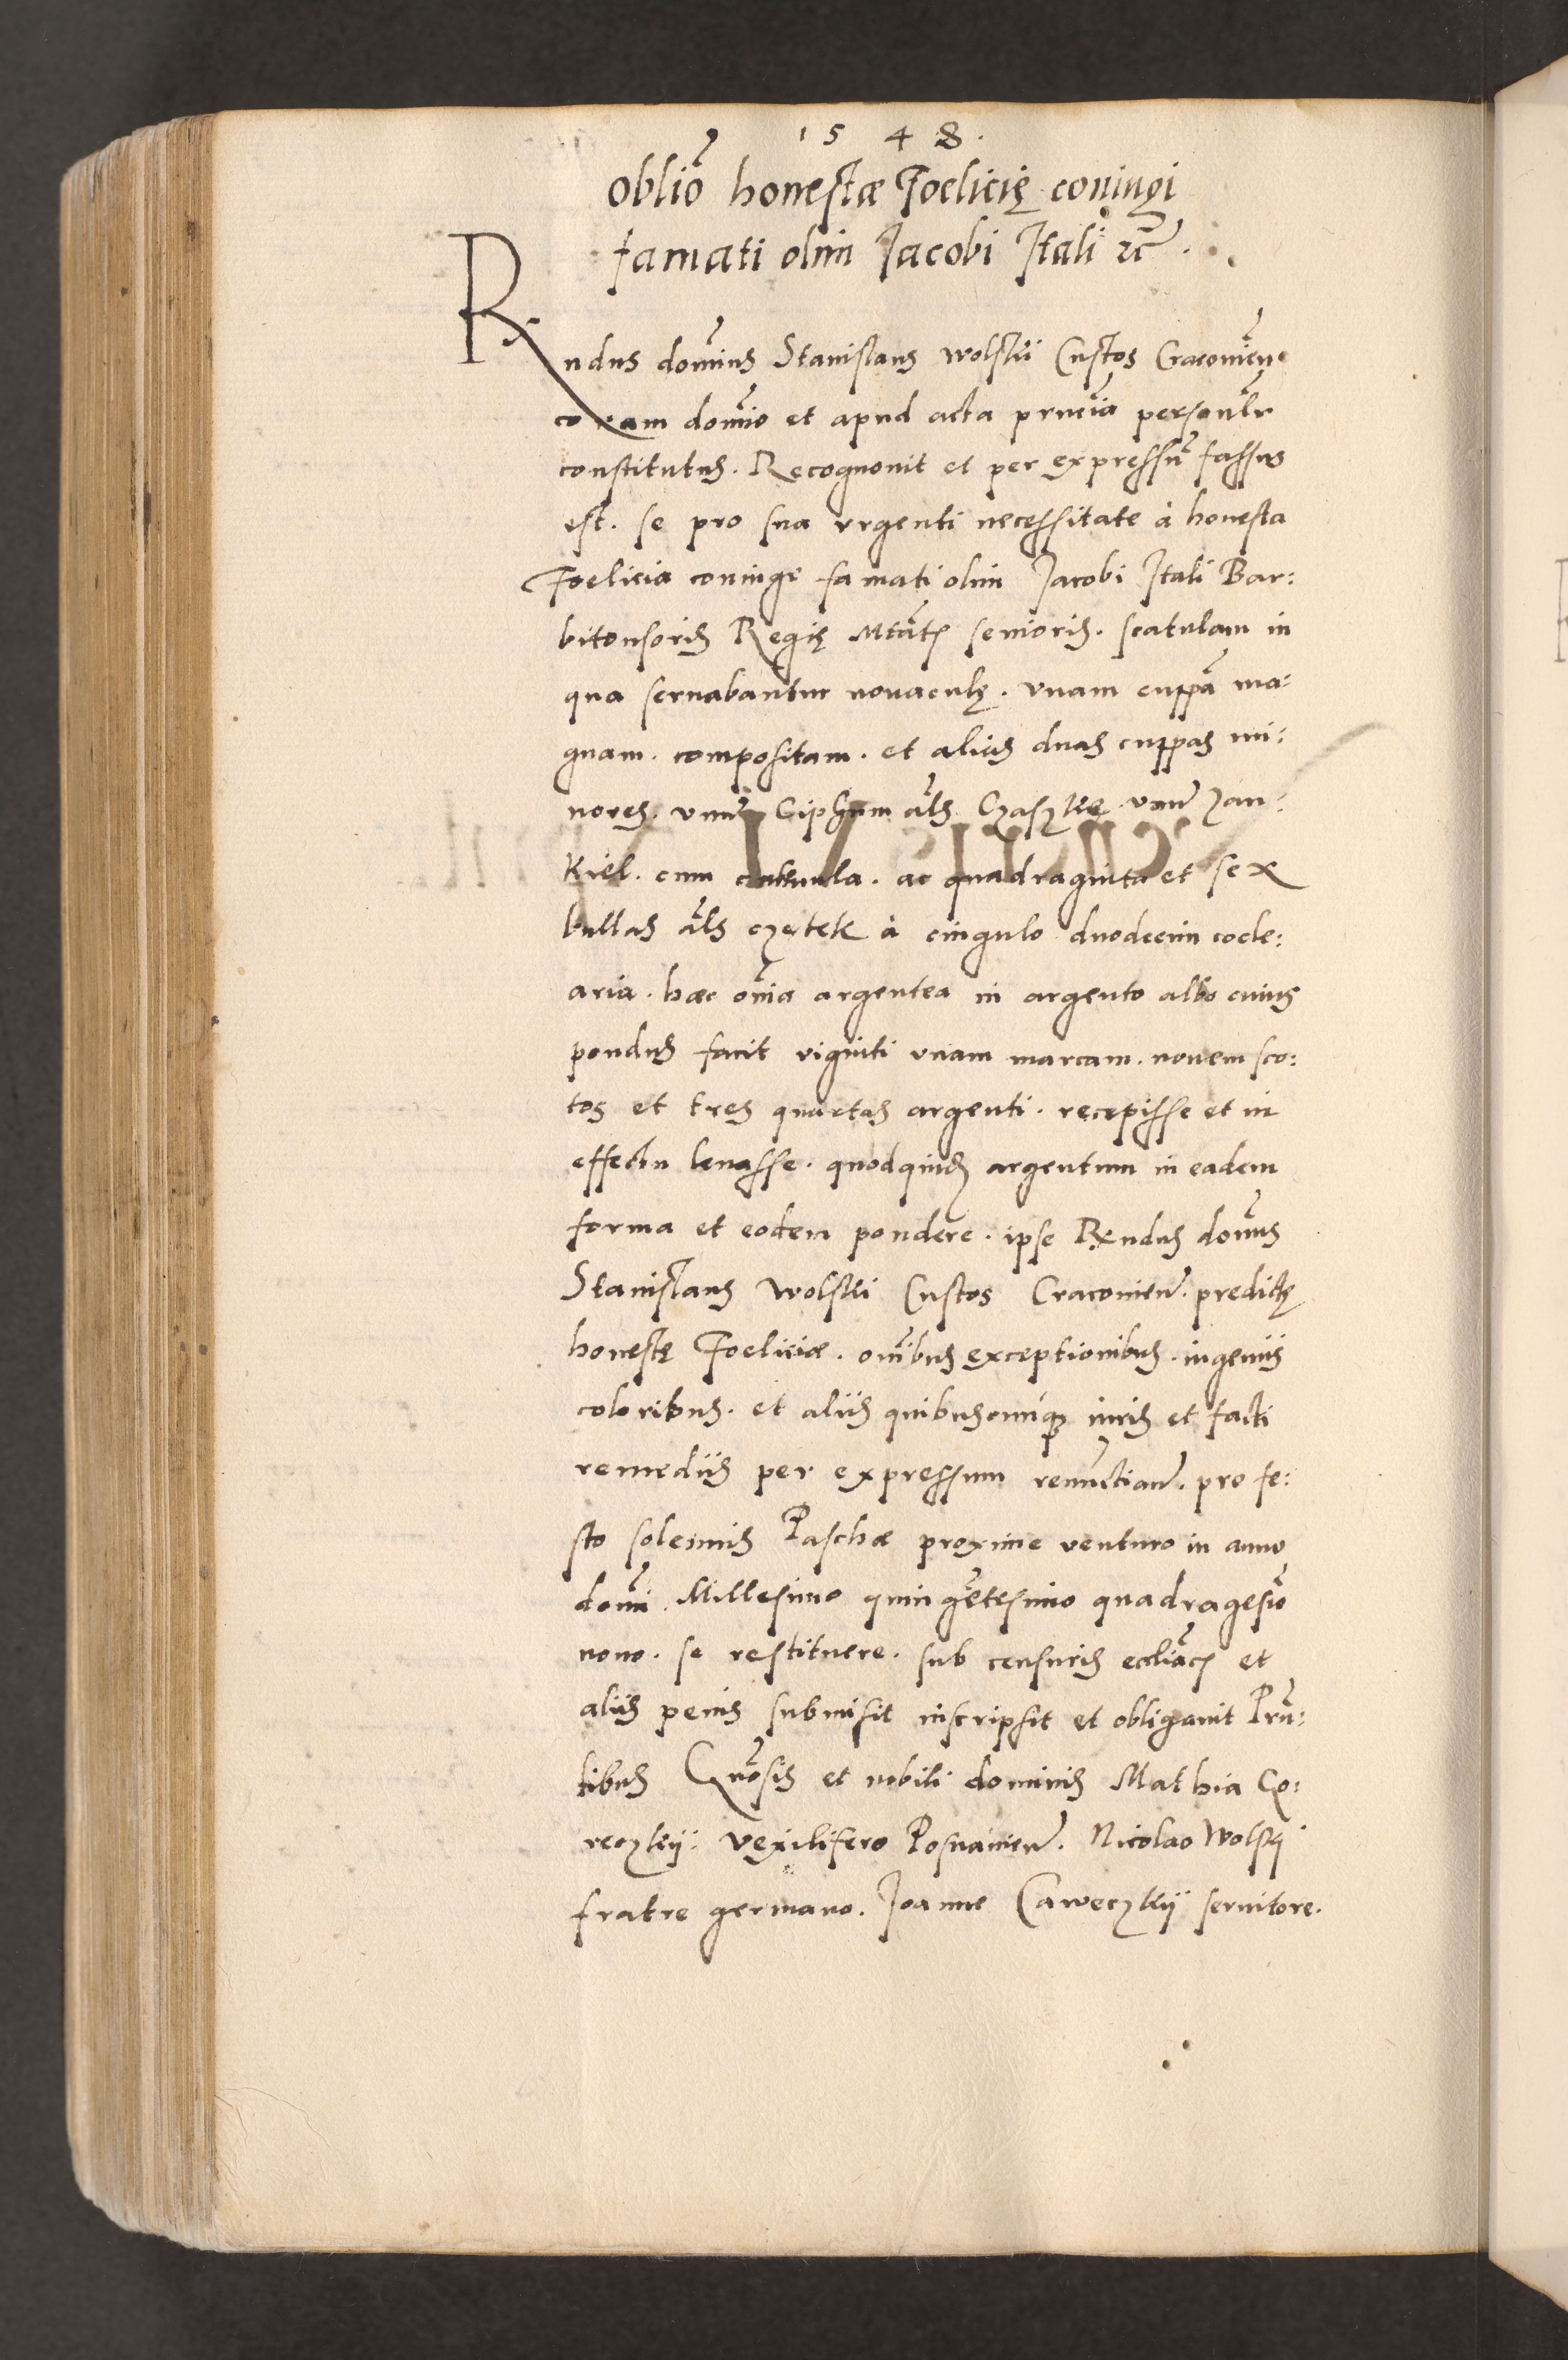 1548.
Oblīo honestæ Foelicię coniugi
famati olim Jacobi Itali etc̄.
Rndus dominus Stanislaus Wolskii Custos Cracovien̄
coram domino et apud acta pn̄tia personalr̄
constitutus. Recognovit et per expressū fassus
est. se pro sua urgenti necessitate à honesta
Foelicia coniuge famati olim Jacobi Itali Bar:
bitonsoris Regię Mtātis senioris. scatulam in
qua servabantur novaculę. unam cuppā ma:
gnam. compositam. et alias duas cuppas mi:
nores. unū Ciphum āls Czaszkę. unū Zan:
kiel. cum catenula. ac quadraginta et sex
bullas āls czetek à cingulo duodecim cocle:
aria. hæc oīa argentea in argento albo cuius
pondus facit viginti unam marcam. novem sco:
tos et tres quartas argenti. recepisse et in
effectu levasse. quodquidē argentum in eadem
forma et eodem pondere. ipse Rx̄ndus domīus
Stanislaus Wolskii Custos Cracovien̄. predictę
honestę Foeliciæ. oībus exceptionibus. ingeniis
coloribus. et aliis quibuscunq; iuris et facti
remediis per expressum renūctian̄. pro fe:
sto solemnis Paschæ proxime venturo in anno
domī. Millesimo quingētesimo quadragesīo
nono. se restituere. sub censuris eccliācis et
aliis penis submisit inscripsit et obligavit Prn̄:
tibus Gn̄osis et nobili dominis Mathia Go:
reczkii: vexilifero Posnanien̄. Nicolao Wolskii
fratre germano. Joanne Gaweczkii servitore.